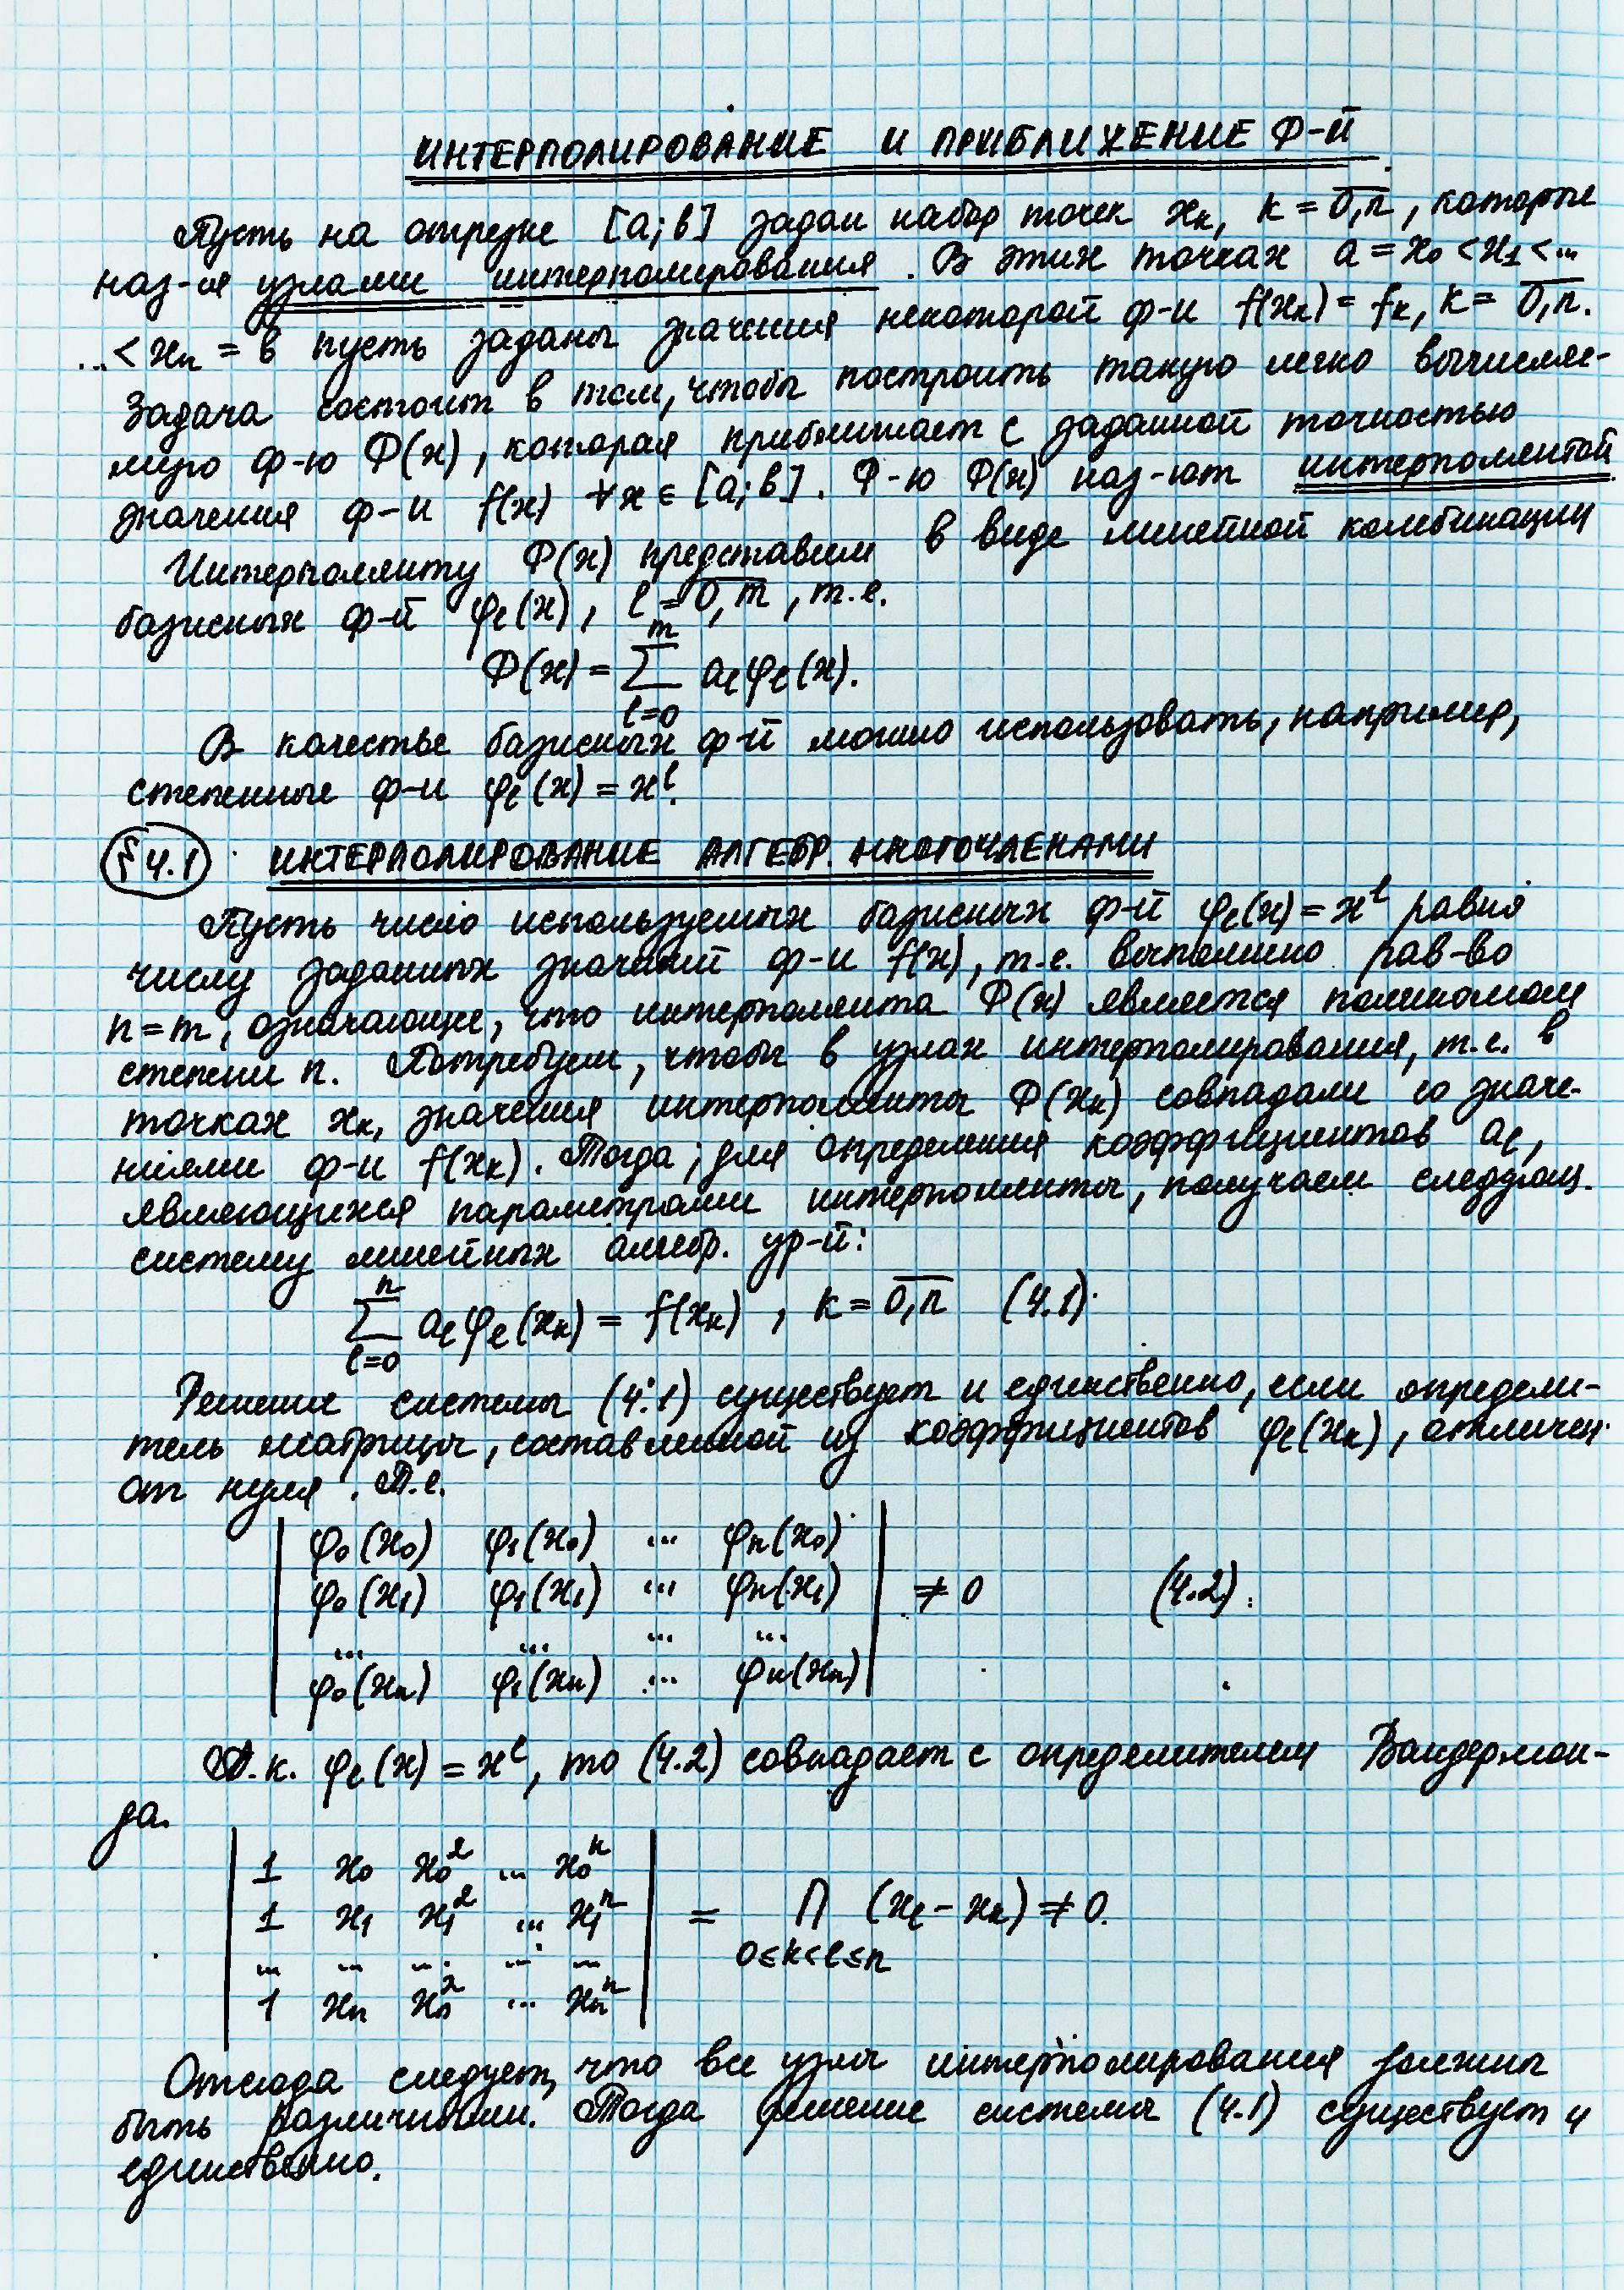 ИНТЕРПОЛИРОВАНИЕ И ПРИБЛИЖЕНИЕ Ф-Й
Пусть на отрезке [a;b] задан набор точек xₖ, k = 0,n̅, которые
наз-ся узлами интерполирования. В этих точках a = x₀ < x₁ < ...
... < xₙ = b пусть заданы значения некоторой ф-и f(xₖ) = fₖ, k = 0,n̅.
Задача состоит в том, чтобы построить такую легко вычисляе-
мую ф-ю Φ(x), которая приближает с заданной точностью
значения ф-и f(x) ∀x ∈ [a;b]. Ф-ю Φ(x) наз-ют интерполянтой
Интерполянту Φ(x) представим в виде линейной комбинации
базисных ф-й φₗ(x), l = 0,m̅, т.е.
Φ(x) = ∑_{l=0}^{m} aₗφₗ(x).
В качестве базисных ф-й можно использовать, например,
степенные ф-и φₗ(x) = xˡ.
§ 4.1 ИНТЕРПОЛИРОВАНИЕ АЛГЕБР. МНОГОЧЛЕНАМИ
Пусть число используемых базисных ф-й φₗ(x) = xˡ равно
числу заданных значений ф-и f(x), т.е. выполнено рав-во
n = m, означающее, что интерполянта Φ(x) является полиномом
степени n. Потребуем, чтобы в узлах интерполирования, т.е. в
точках xₖ, значения интерполянты Φ(xₖ) совпадали со значе-
ниями ф-и f(xₖ). Тогда, для определения коэффициентов aₗ,
являющихся параметрами интерполянты, получаем следующ.
систему линейных алгебр. ур-й:
∑_{l=0}^{n} aₗφₗ(xₖ) = f(xₖ), k = 0,n̅ (4.1)
Решение системы (4.1) существует и единственно, если определи-
тель матрицы, составленной из коэффициентов φₗ(xₖ), отличен
от нуля. Т.е.
| φ₀(x₀) φ₁(x₀) ... φₙ(x₀) |
| φ₀(x₁) φ₁(x₁) ... φₙ(x₁) | ≠ 0 (4.2).
| ... ... ... ... |
| φ₀(xₙ) φ₁(xₙ) ... φₙ(xₙ) |
Т.к. φₗ(x) = xˡ, то (4.2) совпадает с определителем Вандермон-
да.
| 1 x₀ x₀² ... x₀ⁿ |
| 1 x₁ x₁² ... x₁ⁿ | = ∏_{0≤k<l≤n} (xₗ - xₖ) ≠ 0.
| ... ... ... ... ... |
| 1 xₙ xₙ² ... xₙⁿ |
Отсюда следует, что все узлы интерполирования должны
быть различными. Тогда решение системы (4.1) существует и
единственно.